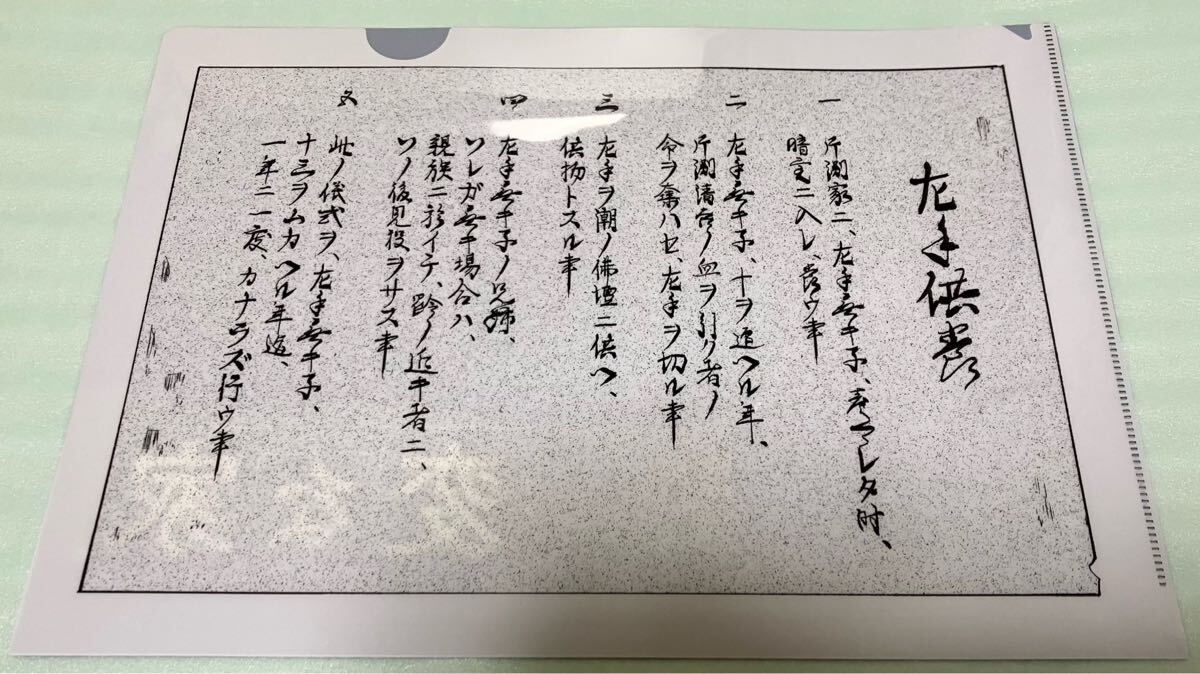 左手供養
一
片淵家ニ、左手無キ子、産マレタ時、
暗室ニ入レ、養ウ事
二
左手無キ子、十ヲ迎ヘル年、
片淵清吉ノ血ヲ引ク者ノ
命ヲ奪ハセ、左手ヲ切ル事
三
左手ヲ潮ノ佛壇ニ供ヘ、
供物トスル事
四
左手無キ子ノ兄姉、
ソレガ無キ場合ハ、
親族ニ於イテ、齢ノ近キ者ニ、
ソノ後見役ヲサス事
五
此ノ儀式ヲ、左手無キ子、
十三ヲムカヘル年迄、
一年ニ一度、カナラズ行ウ事
変な家